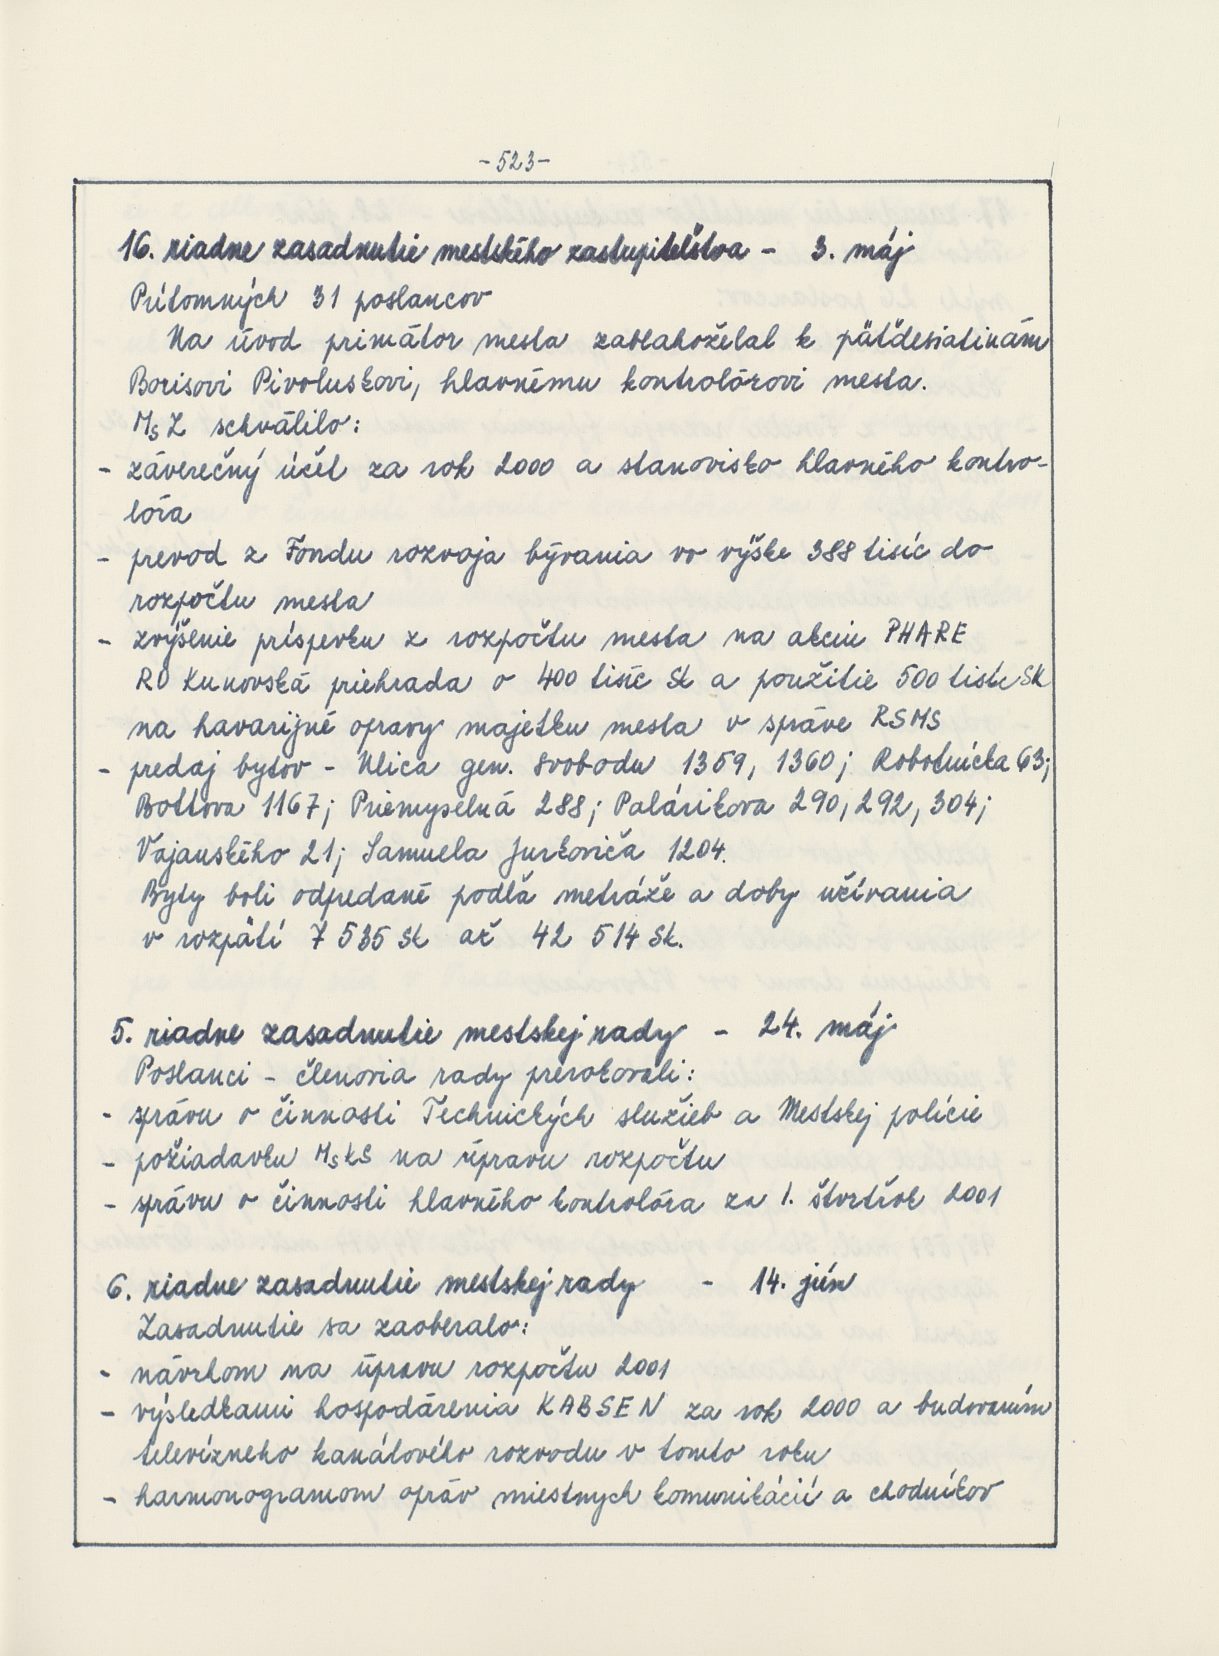 -523-
16. riadne zasadnutie mestského zastupiteľstva - 3. máj
Prítomných 31 poslancov
Na úvod primátor mesta zablahoželal k päťdesiatinám
Borisovi Pivoluskovi, hlavnému kontrolórovi mesta.
MsZ schválilo:
- záverečný účet za rok 2000 a stanovisko hlavného kontro-
lóra
- prevod z Fondu rozvoja bývania vo výške 388 tisíc do
rozpočtu mesta
- zvýšenie príspevku z rozpočtu mesta na akciu PHARE
RO Kunovská priehrada o 400 tisíc Sk a použitie 500 tisíc Sk
na havarijné opravy majetku mesta v správe RSMS
- predaj bytov - Ulica gen. Svobodu 1359, 1360; Robotnícka 63;
Bottova 1167; Priemyselná 288; Palárikova 290, 292, 304;
Vajanského 21; Samuela Jurkoviča 1204.
Byty boli odpredané podľa metráže a doby užívania
v rozpätí 7 535 Sk až 42 514 Sk.
5. riadne zasadnutie mestskej rady - 24. máj
Poslanci - členovia rady prerokovali:
- správu o činnosti Technických služieb a Mestskej polície
- požiadavku MsKS na úpravu rozpočtu
- správu o činnosti hlavného kontrolóra za 1. štvrťrok 2001
6. riadne zasadnutie mestskej rady - 14. jún
Zasadnutie sa zaoberalo:
- návrhom na úpravu rozpočtu 2001
- výsledkami hospodárenia KABSEN za rok 2000 a budovaním
televízneho kanálového rozvodu v tomto roku
- harmonogramom opráv miestnych komunikácií a chodníkov